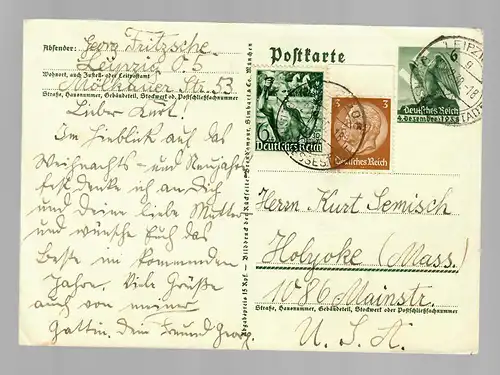 Absender: Georg Fritzsche
Leipzig O5
Wohnort, auch Zustell- oder Leitpostamt
Mölkauer Str. 53
Straße, Hausnummer, Gebäudeteil, Stockwerk od. Postschließfachnummer
Lieber Kurt!
Im Hinblick auf das
Weihnachts- und Neujahrs-
fest denke ich an Dich
und deine liebe Mutter
und wünsche Euch das
Beste im kommenden
Jahre. Viele Grüße
auch von meiner
Gattin. Dein Freund Georg.
Abgabepreis 15 Rpf. – Bilddruck der Rückseite: Bruckmann, Gimbach u. Co, München
Postkarte
6+4
Deutsches Reich
3 3
Deutsches Reich
6
Deutsches Reich
4. Dezember 1938
LEIPZIG
Herrn Kurt Semisch
Holyoke (Mass.)
1086 Mainstr.
Straße, Hausnummer, Gebäudeteil, Stockwerk oder Postschließfachnummer
U. S. A.